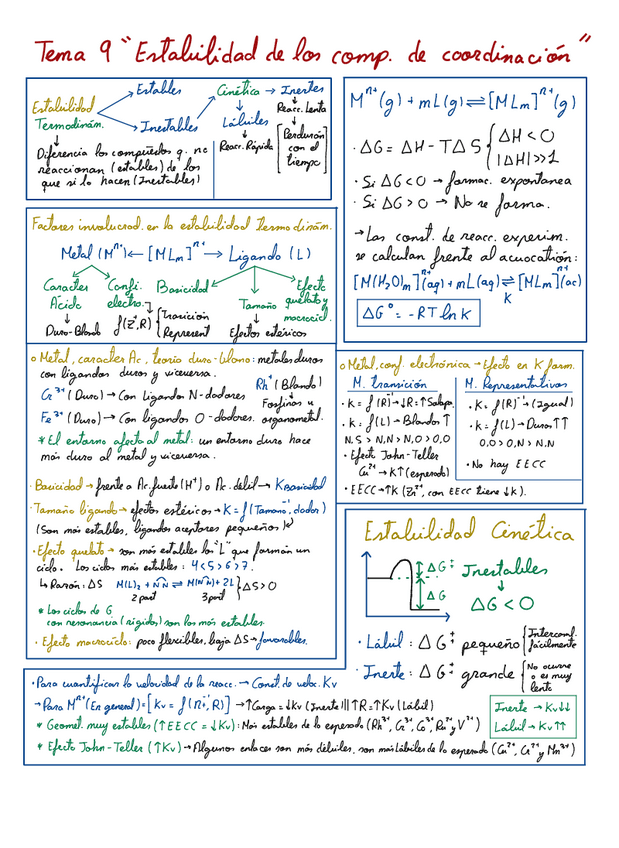 Tema 9 "Estabilidad de los comp. de coordinación"
Estabilidad
Termodinám.
Estables
Inestables
Diferencia los compuestos q. no
reaccionan (estables) de los
que si lo hacen (Inestables)
Cinética → Inertes
Lábiles
Reacc. Rápida
Reacc. Lenta
[Perduran
con el
tiempo]
Mⁿ⁺(g) + mL(g) ⇌ [MLm]ⁿ⁺(g)
· ΔG = ΔH - TΔS { ΔH < 0
|ΔH| >> 1
· Si ΔG < 0 → formac. espontanea
· Si ΔG > 0 → No se forma.
→ Las const. de reacc. experim.
se calculan frente al acuocatión:
[M(H₂O)m]ⁿ⁺(aq) + mL(aq) ⇌ [MLm]ⁿ⁺(ac)
K
ΔG° = -RT ln K
Factores involucrad. en la estabilidad termodinám.
Metal (Mⁿ⁺) ← [MLm]ⁿ⁺ → Ligando (L)
Caracter
Ácido
Duro-Blando
Confi.
electro.
f(Z⁺,R) { Transición
Represent
Basicidad
Tamaño
Efectos estéricos
Efecto
quelato y
macrocicl.
o Metal, caracter Ac, teoría duro-blano: metales duros
con ligandos duros y viceversa.
Cr³⁺ (Duro) → Con Ligandos N-dadores
Fe³⁺ (Duro) → Con ligandos O-dadores.
Rh⁺ (Blando)
Fosfinas u
organometal.
* El entorno afecta al metal: un entorno duro hace
más duro al metal y viceversa.
· Basicidad → frente a Ac. fuerte (H⁺) o Ac. débil → K basicidad
· Tamaño ligando → efectos estéricos → K = f(Tamaño⁻¹, dador)
(Son más estables, ligandos aceptores pequeños)
· Efecto quelato → son más estables los "L" que forman un
ciclo. Los ciclos más estables: 4 < 5 > 6 > 7.
↳ Razón: ΔS M(L)₂ + N͡N ⇌ M(N͡N) + 2L } ΔS > 0
2 part 3 part
* Los ciclos de 6
con resonancia (rígidos) son los más estables.
· Efecto macrociclo: poco flexibles, baja ΔS → favorables.
o Metal, conf. electrónica → Efecto en K form.
M. transición
· K = f(R)⁻¹
· K = f(L) → Blandos ↑
N,S > N,N > N,O > O,O
· Efecto John-Teller
Cu²⁺ → K↑ (esperado)
· EECC → ↑K (Zn²⁺, con EECC tiene ↓K).
M. Representativos
· K = f(R)⁻¹ → (Igual)
· K = f(L) → Duros ↑↑
O,O > O,N > N,N
· No hay EECC
Estabilidad Cinética
ΔG‡
ΔG
Inestables
ΔG < 0
· Lábil: ΔG‡ pequeño { Interconf.
fácilmente
· Inerte: ΔG‡ grande { No ocurre
o es muy
lento
· Para cuantificar la velocidad de la reacc. → Const. de veloc. Kv
→ Para Mⁿ⁺ (En general) = [Kv = f(n⁺⁻¹, R)] → ↑Carga = ↓Kv (Inerte) || ↑R = ↑Kv (Lábil)
* Geomet. muy estables (↑EECC = ↓Kv): Más estables de lo esperado (Rh³⁺, Cr³⁺, Co³⁺, Ru²⁺ y V²⁺)
* Efecto John-Teller (↑Kv) → Algunos enlaces son más débiles, son más lábiles de lo esperado (Cu²⁺, Cr²⁺ y Mn³⁺)
Inerte → Kv ↓↓
Lábil → Kv ↑↑